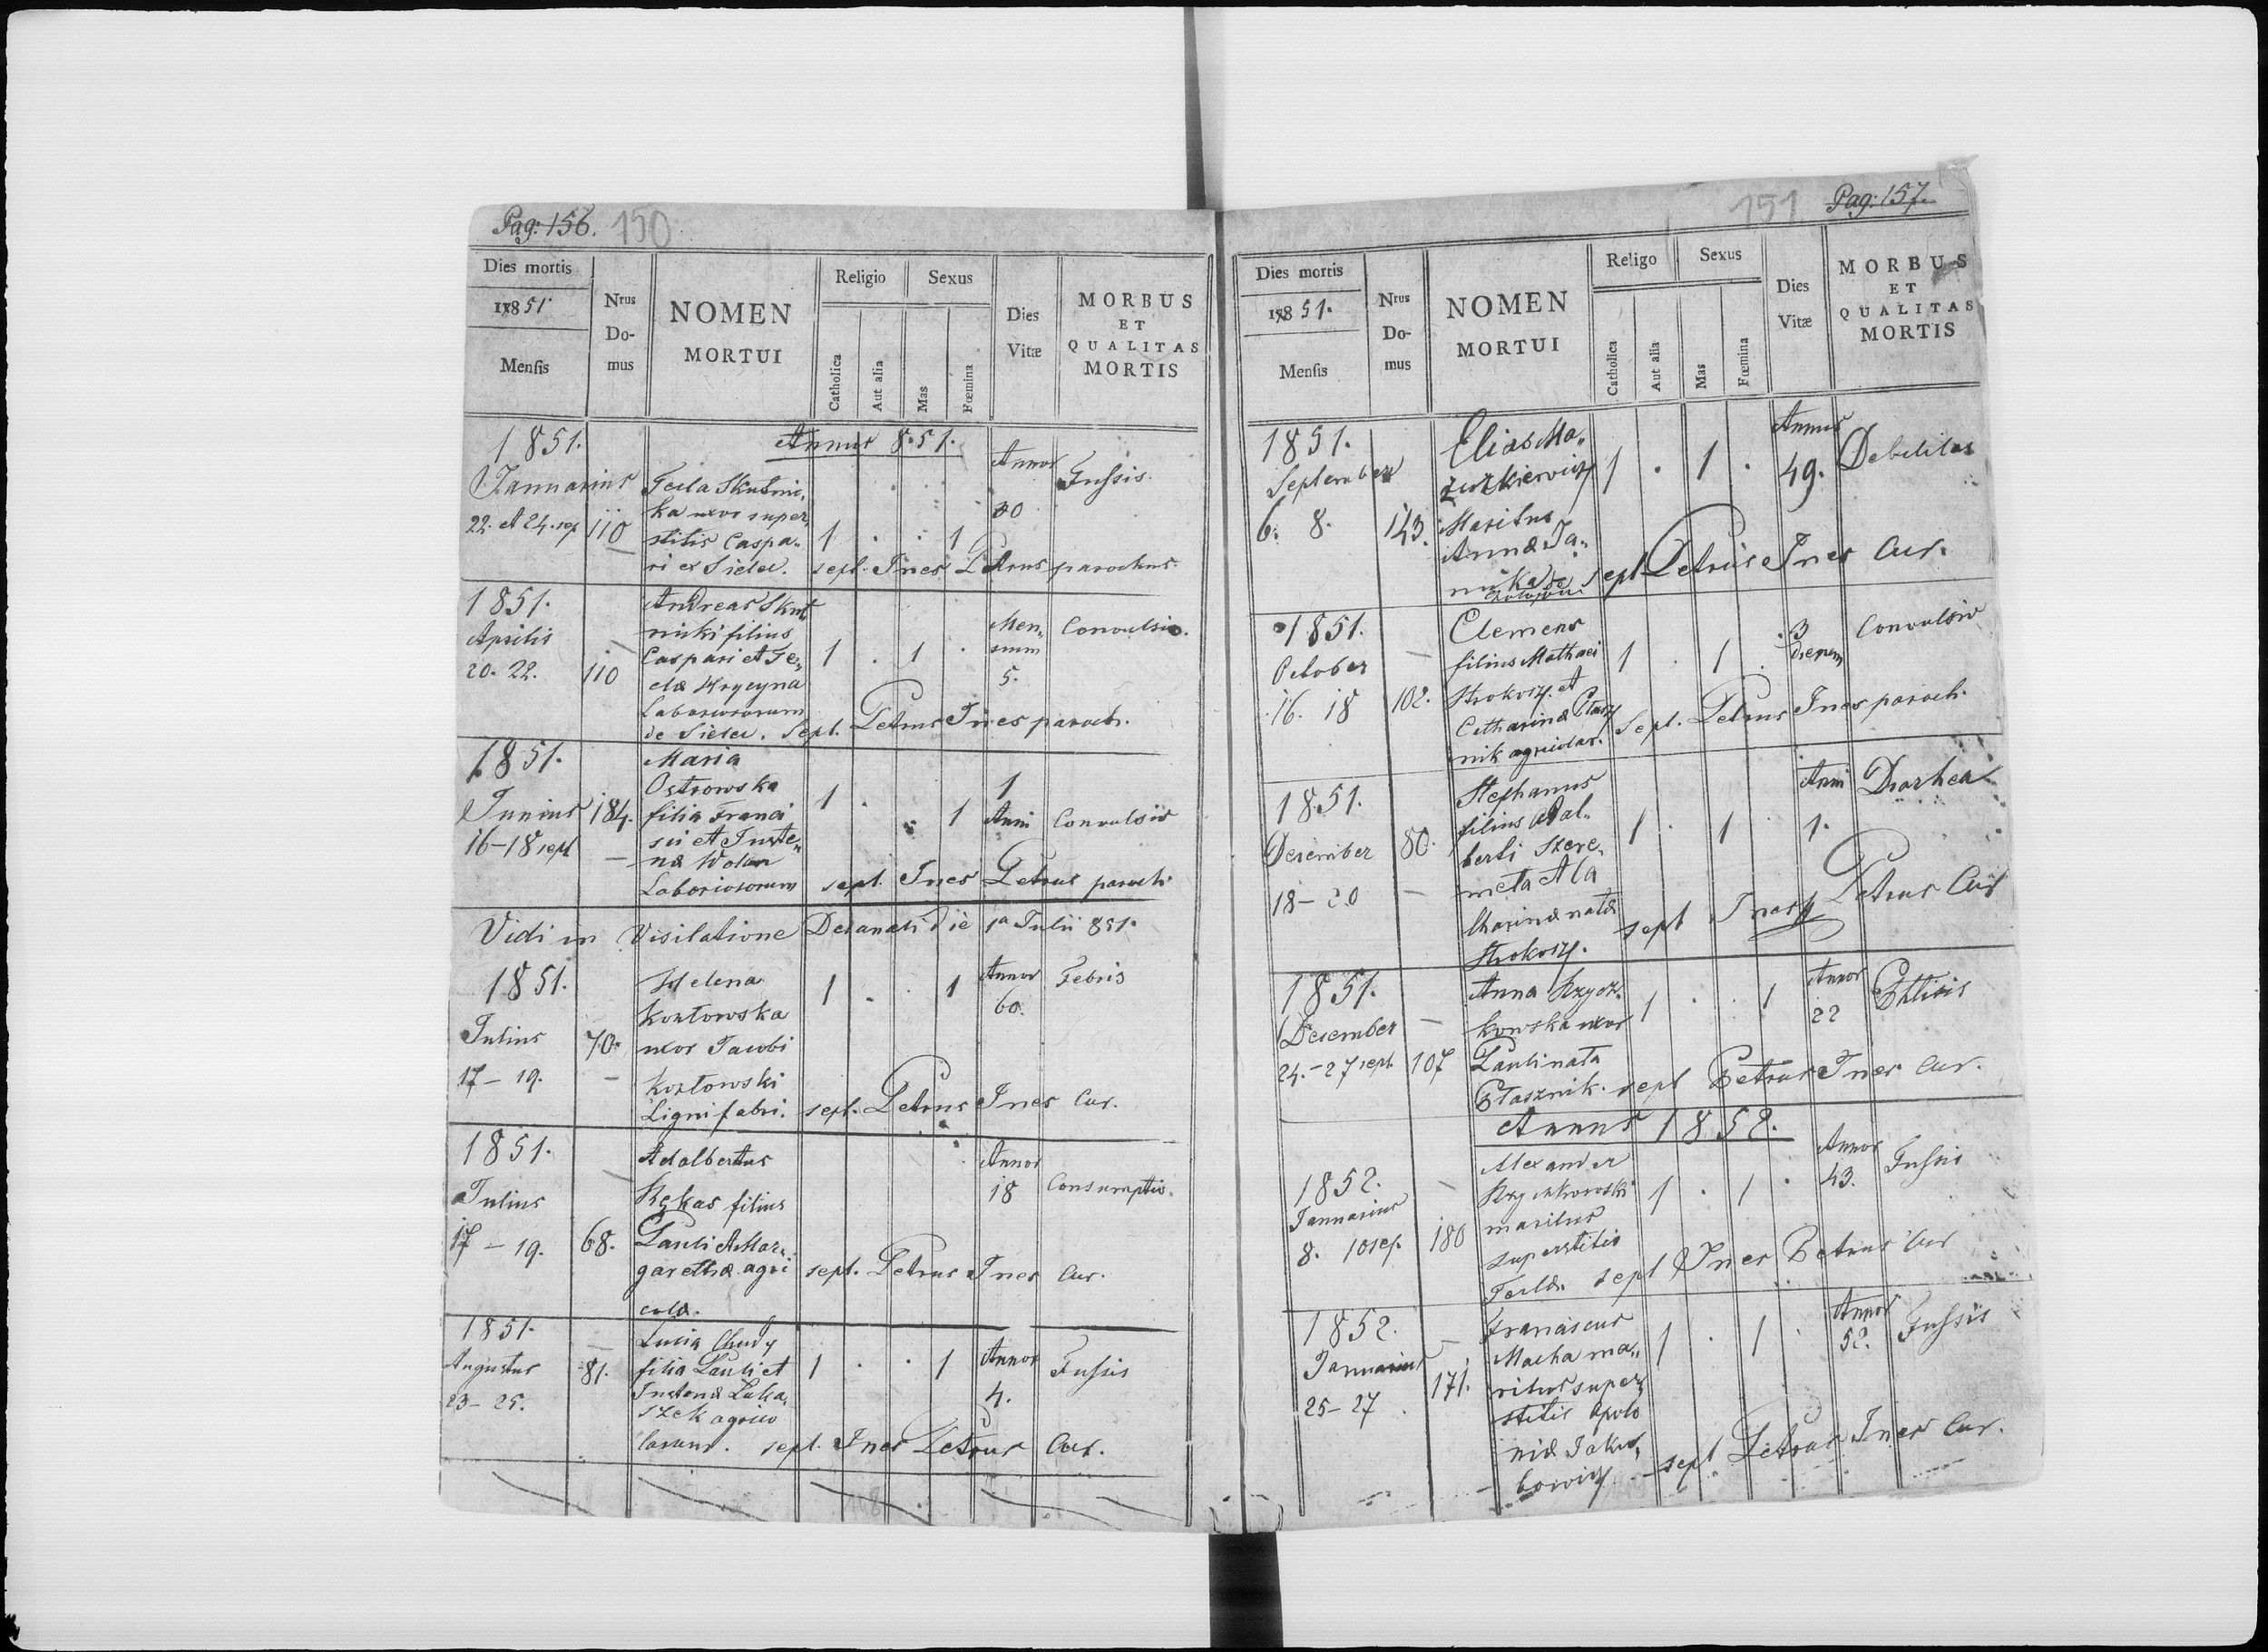 Pag: 156. 150
Dies mortis
Nrus Do-mus
NOMEN MORTUI
Religio
Sexus
Dies Vitæ
MORBUS ET QUALITAS MORTIS
1851
Mensis
Catholica
Aut alia
Mas
Fœmina
Annus 851.
1851.
Januarius
22. et 24. sep
110
Tecla Skutni„
ka uxor super„
stitis Caspa„
ri ex Sielec.
1 . . 1
Annor
30
Tussis.
sept. Ines Petrus parochus.
1851.
Aprilis
20. 22.
110
Andreas Skut
nicki filius
Caspari et Te„
clæ Hrycyna
Laboriosorum
de Sielec.
1 . 1 .
Men„
sium
5.
Convulsio.
Sept. Petrus Ines paroch.
1851.
Junius
16-18 sept
184.
Maria
Ostrowska
filia Franci
sci et Juste„
næ Wolan
Laboriosorum
1 . . 1
1
Anni
Convulsio
sept. Ines Petrus paroch
Vidi in Visitatione Decanali die 1a Julii 851.
1851.
Julius
17 - 19.
70.
Helena
Kozłowska
uxor Jacobi
Kozłowski
Ligni fabri.
1 . 1
Annor
60.
Febris
sept. Petrus Ines Cur.
1851.
Julius
17 - 19.
68.
Adalbertus
Kękas filius
Pauli et Mar„
garethæ agri
colæ.
Annor
18
Consumptio.
sept. Petrus Ines Cur.
1851.
Augustus
23 - 25.
81.
Lucia Chudy
filia Pauli et
Justenæ Luka„
szek agrico
larum.
1 . . 1
Annor
4.
Tussis
sept. Ines Petrus Cur.
151 Pag: 157.
Dies mortis
Nrus Do-mus
NOMEN MORTUI
Religo
Sexus
Dies Vitæ
MORBUS ET QUALITAS MORTIS
1851.
Mensis
Catholica
Aut alia
Mas
Fœmina
1851.
September
6. 8.
143.
Elias Ma„
zurkiewicz
Maritus
Annæ Ja„
nicka de
1 . 1 .
Annus
49.
Debilitas
sept Petrus Ines Cur.
1851.
October
16. 18
102.
Clemens
filius Mathaei
Strokosz. et
Catharinæ Ptasz
nik agricolar.
1 . 1 .
3
dierum
Convulsio
Sept. Petrus Ines paroch.
1851.
December
18 - 20
80.
Stephanus
filius Adal„
berti Szere„
meta et Ca
tharinæ natæ
Strokosz.
1 . 1 .
Anni
1.
Diarhea
sept Ines Petrus Cur
1851.
December
24. - 27 sept.
107
Anna Krycz„
kowska uxor
Pauli nata
Ptasznik.
1 . . 1
Annor
22
Phtisis
sept Petrus Ines Cur.
Annus 1852.
1852.
Januarius
8. 10 sep.
180
Alexander
Kryczkowski
maritus
superstitis
Teclæ.
1 . 1 .
Annor
43.
Tussis
sept Ines Petrus Cur
1852.
Januarius
25 - 27
171.
Franciscus
Macha ma„
ritus super„
stitis Apolo
niæ Jaku„
bowicz
1 . 1 .
Annor
52.
Tussis
sept Petrus Ines Cur.